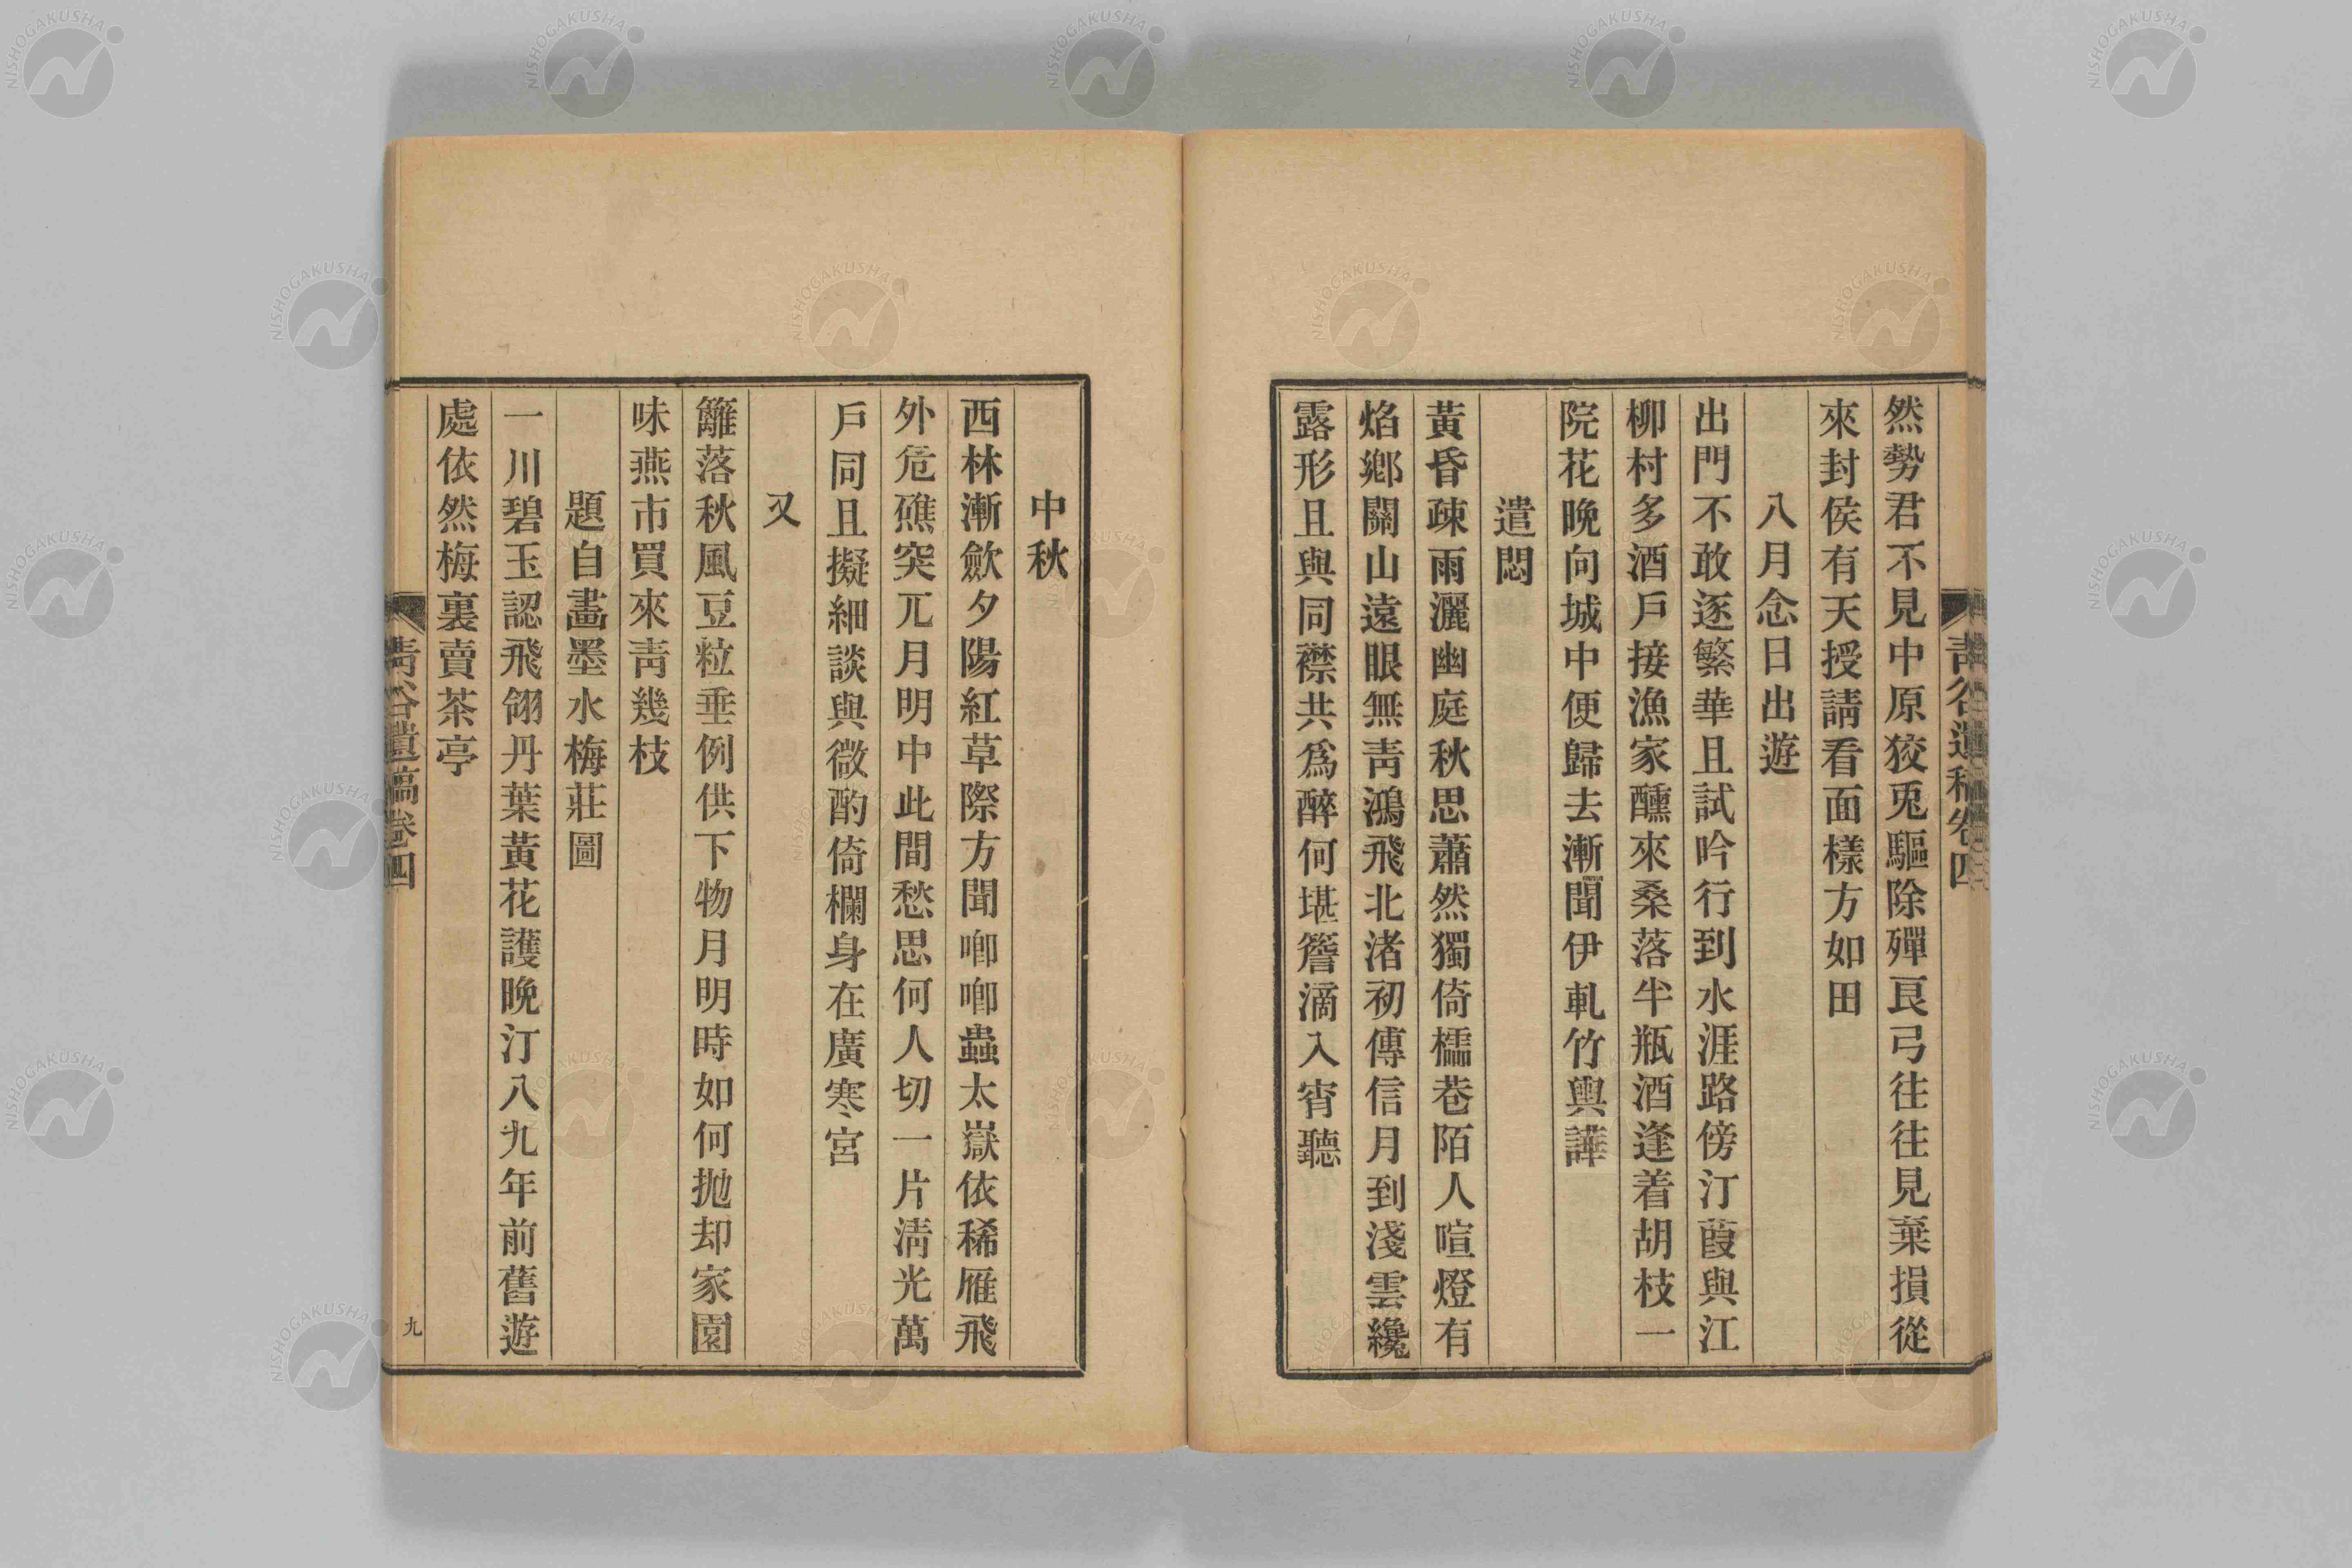 然勢君不見中原狡兎驅除殫良弓往往見棄損從
來封侯有天授請看面樣方如田
八月念日出遊
出門不敢逐繁華且試吟行到水涯路傍汀葭與江
柳村多酒戶接漁家醺來桑落半瓶酒逢着胡枝一
院花晚向城中便歸去漸聞伊軋竹輿譁
遣悶
黃昏疎雨灑幽庭秋思蕭然獨倚櫺巷陌人喧燈有
焰鄉關山遠眼無靑鴻飛北渚初傳信月到淺雲纔
露形且與同襟共爲醉何堪簷滴入宵聽
靑谷遺稿卷四
中秋
西林漸歛夕陽紅草際方聞喞喞蟲太嶽依稀雁飛
外危礁突兀月明中此間愁思何人切一片淸光萬
戶同且擬細談與微酌倚欄身在廣寒宮
又
籬落秋風豆粒垂例供下物月明時如何拋却家園
味燕市買來靑幾枝
題自畵墨水梅莊圖
一川碧玉認飛翎丹葉黃花護晚汀八九年前舊遊
處依然梅裏賣茶亭
靑谷遺稿卷四
九
NISHOGAKUSHA